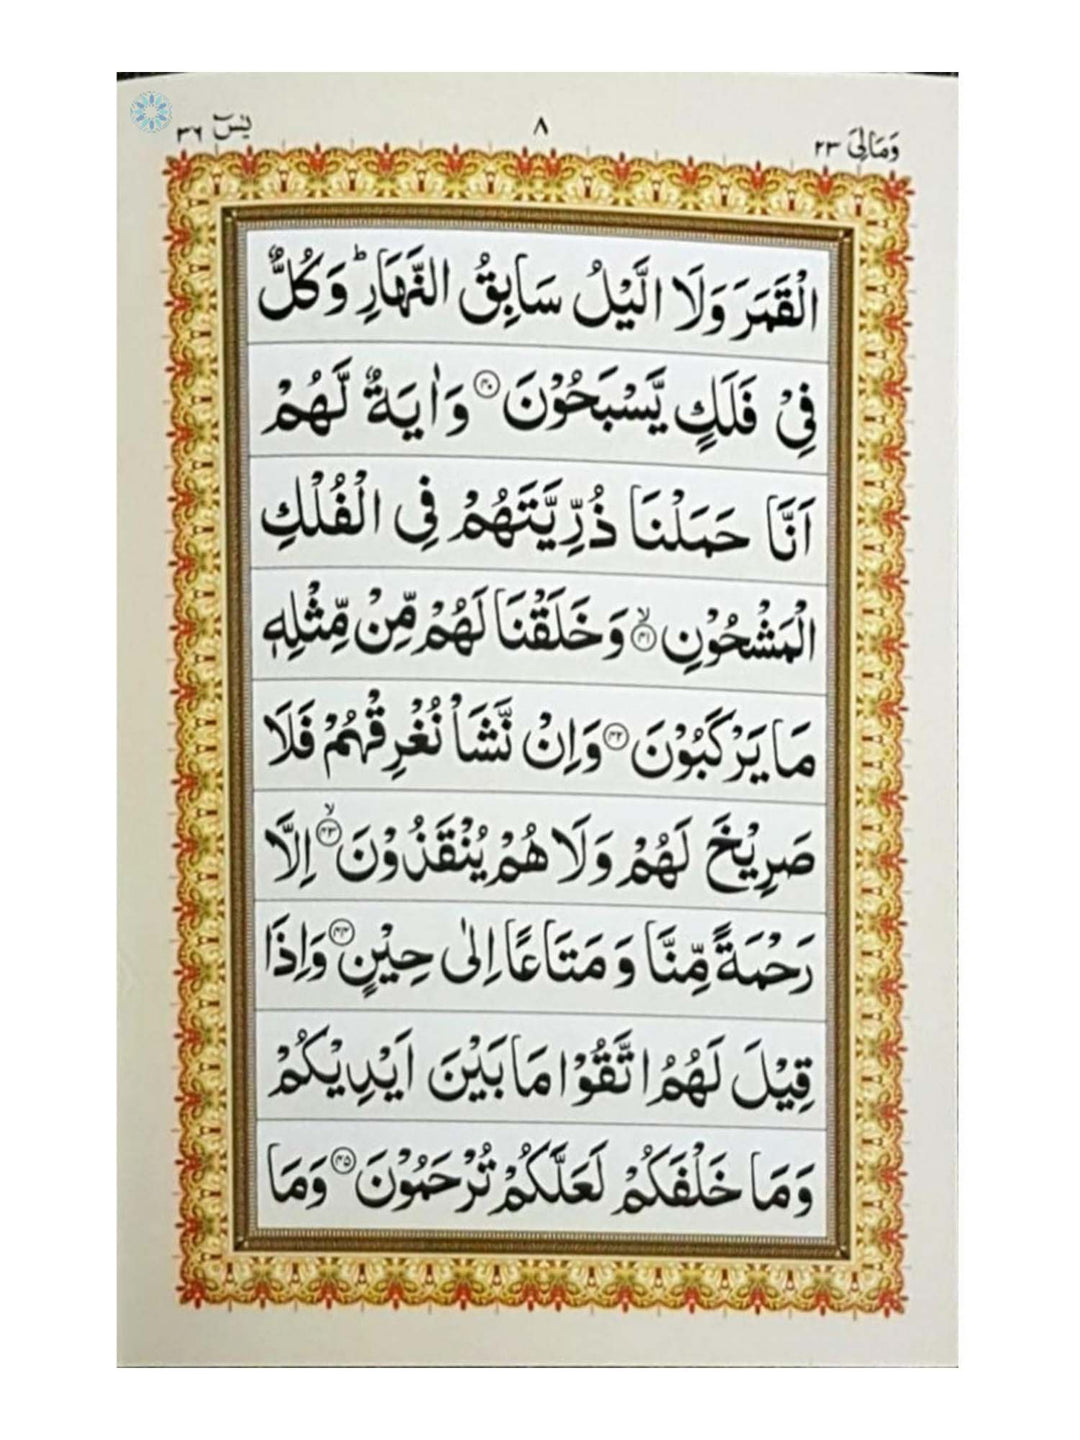 وَمَالِیَ ٢٣
٨
يٰسٓ ٣٦
الْقَمَرَ وَلَا الَّيْلُ سَابِقُ النَّهَارِؕ وَكُلٌّ
فِيْ فَلَكٍ يَّسْبَحُوْنَ ۝٤٠ وَاٰيَةٌ لَّهُمْ
اَنَّا حَمَلْنَا ذُرِّيَّتَهُمْ فِي الْفُلْكِ
الْمَشْحُوْنِۙ ۝٤١ وَخَلَقْنَا لَهُمْ مِّنْ مِّثْلِهٖ
مَا يَرْكَبُوْنَ ۝٤٢ وَاِنْ نَّشَاْ نُغْرِقْهُمْ فَلَا
صَرِيْخَ لَهُمْ وَلَا هُمْ يُنْقَذُوْنَۙ ۝٤٣ اِلَّا
رَحْمَةً مِّنَّا وَمَتَاعًا اِلٰى حِيْنٍ ۝٤٤ وَاِذَا
قِيْلَ لَهُمُ اتَّقُوْا مَا بَيْنَ اَيْدِيْكُمْ
وَمَا خَلْفَكُمْ لَعَلَّكُمْ تُرْحَمُوْنَ ۝٤٥ وَمَا